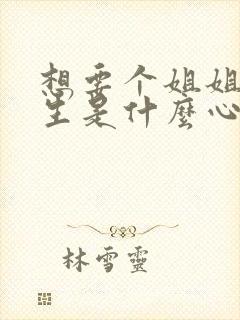 想要个姐姐
生是什麼心
林雪靈